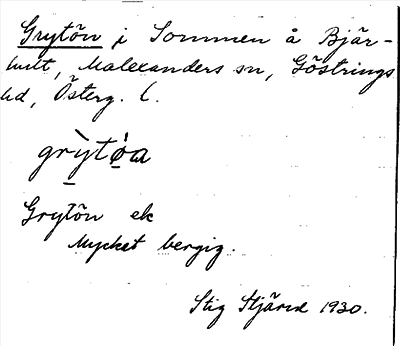 Grytön i Sommen å Bjär-
hult, Malexanders sn, Göstrings
hd, Österg. l.
grỳtø̀a
Grytön ek
Mycket bergig.
Stig Stjärnd 1930.